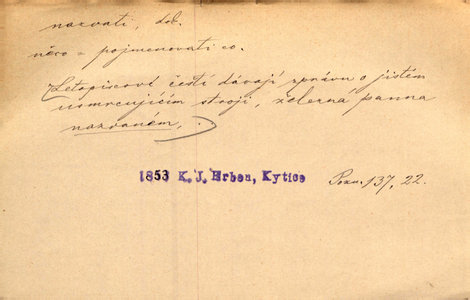 nazvati, dok.
něco = pojmenovati co.
Letopiscové čeští dávají zprávu o jistém
usmrcujícím stroji, železná panna
nazvaném, .
1853 K. J. Erben, Kytice Pozn. 137, 22.